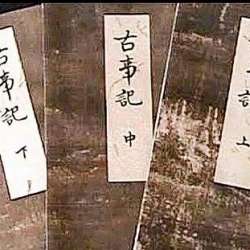 古事記 下
古事記 中
記 上